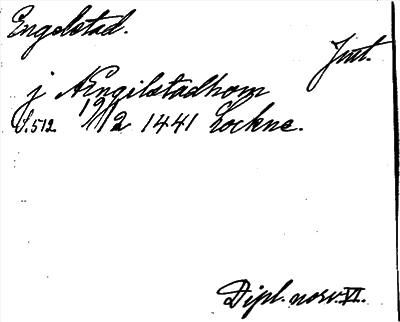 Engelstad.
Jmt.
j Ængilstadhom
S. 512. 19/12 1441 Lockne.
Dipl. norv. VI.